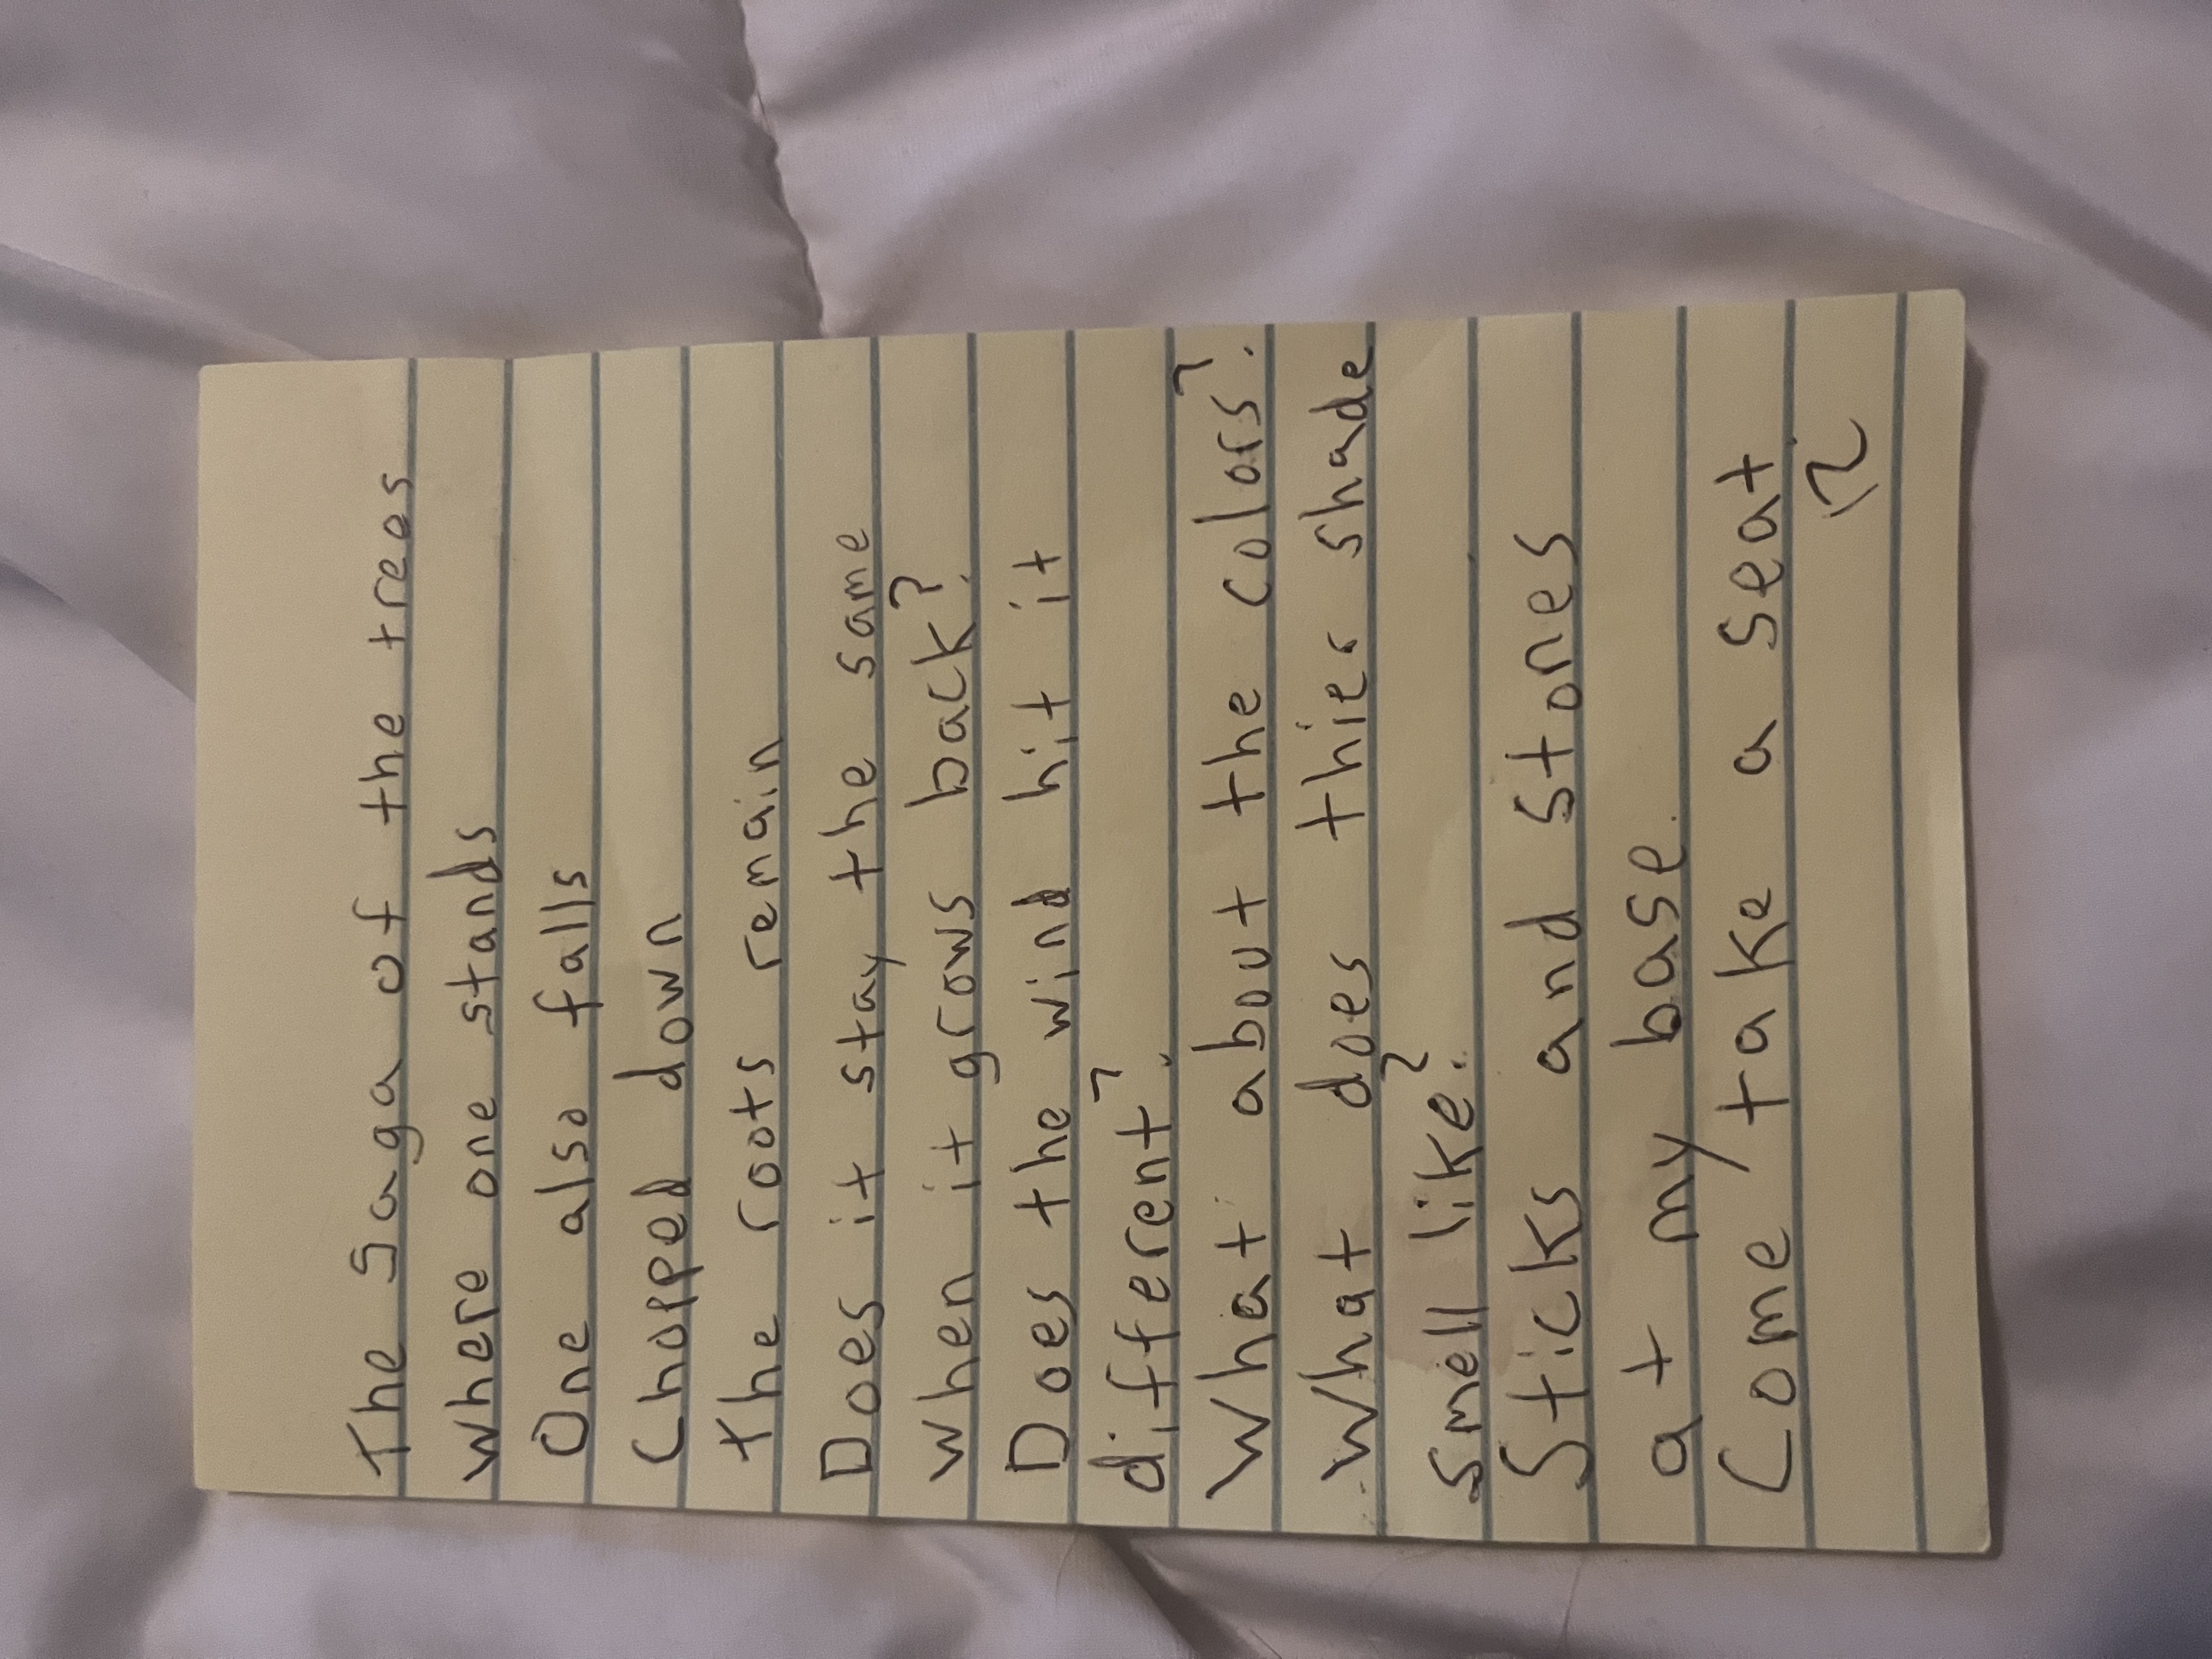 The Saga of the trees
where one stands
One also falls
Chopped down
The roots remain
Does it stay the same
when it grows back?
Does the wind hit it
different?
What about the colors?
What does thier shade
smell like?
Sticks and stones
at my base.
Come take a seat.
12